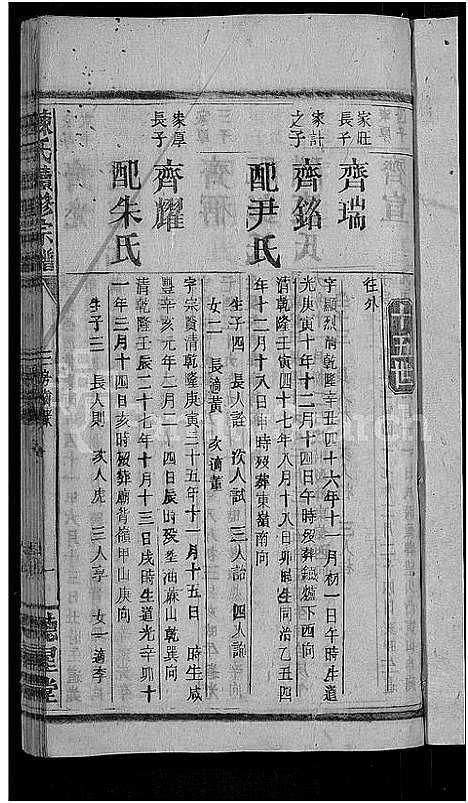 十五世
家旺
長子
齊瑞
往外
家計
之子
齊銘
字顯烈清乾隆辛丑四十六年十一月初一日午時生道
光庚寅十年十二月十四日午時歿葬鐵爐下西向
配尹氏
清乾隆壬寅四十七年八月十八日卯時生同治乙丑四
年十二月十八日申時歿葬東嶺南向
生子四 長人詮 次人試 三人詥 四人諭
女二 長適黃 次適董
家厚
長子
齊耀
字宗賢清乾隆庚寅三十五年十一月十五日 時生咸
豐辛亥元年二月二十四日辰時歿葬油蔴山乾巽向
配朱氏
清乾隆壬辰三十七年十月十三日戌時生道光辛卯十
一年二月十四日亥時歿葬廟背嶺甲山庚向
生子三 長人則 次人虎 三人享 女一適李
陳氏續修宗譜
德星堂